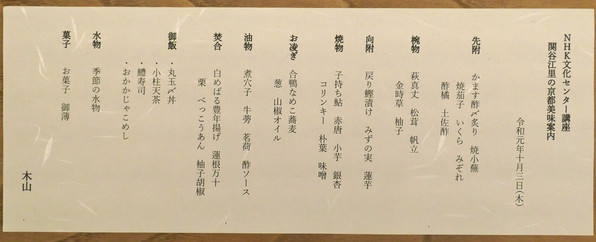 NHK文化センター講座
関谷江里の京都美味案内
令和元年十月三日(木)
先附 かます酢〆炙り 焼小蕪
焼茄子 いくら みぞれ
酢橘 土佐酢
椀物 萩真丈 松茸 帆立
金時草 柚子
向附 戻り鰹漬け みずの実 蓮芋
焼物 子持ち鮎 赤唐 小芋 銀杏
コリンキー 朴葉 味噌
お凌ぎ 合鴨なめこ蕎麦
葱 山椒オイル
油物 煮穴子 牛蒡 茗荷 酢ソース
焚合 白めばる豊年揚げ 蓮根万十
栗 べっこうあん 柚子胡椒
御飯 ・丸玉〆丼
・小柱天茶
・鱧寿司
・おかかじゃこめし
水物 季節の水物
菓子 お菓子 御薄
木山